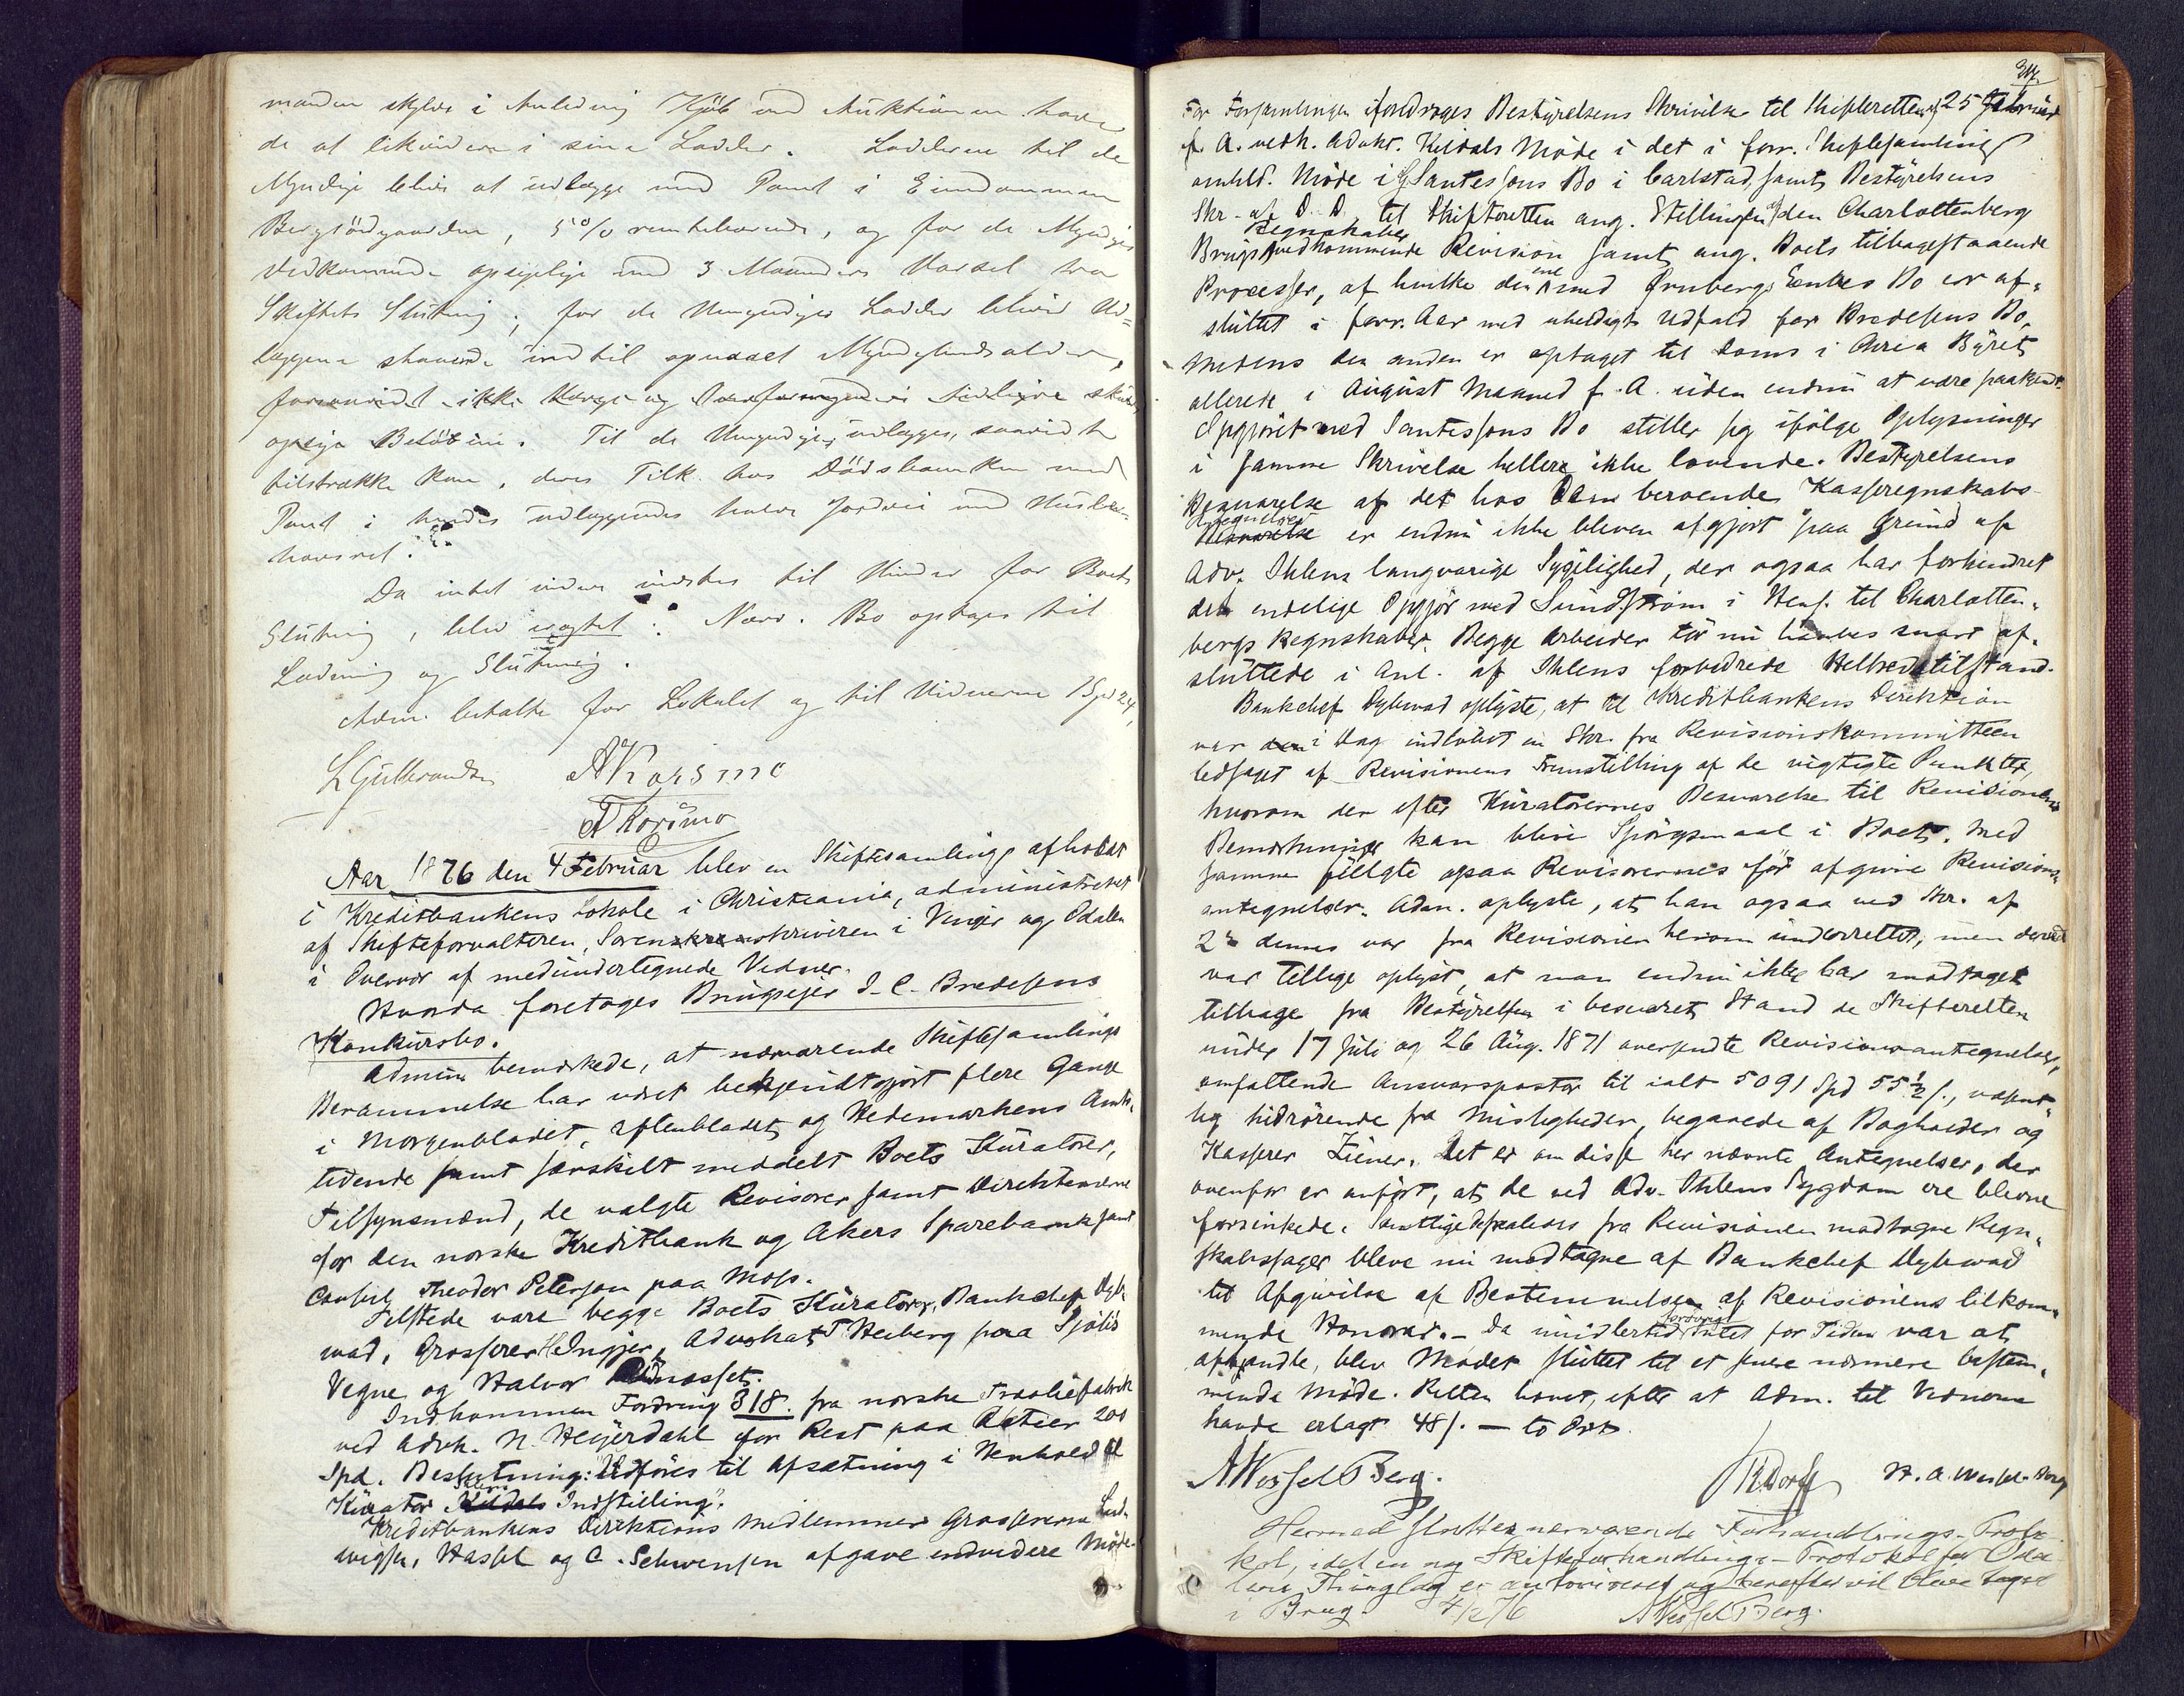 manden skylder i Anledning Kjøb ved Auktionen have
de at likvidere i sine Lodder. Lodderne til de
Myndige blive at udlægge med Pant i Eiendommen
5 % rentebærende, og for de Myndiges
Vedkommende opsigelige med 3 Maaneders Varsel fra
Skiftets Slutning; for de Umyndiges Lodder bliver Ud-
læggene staaende indtil opnaaet Myndighedsalder,
forsaavidt ikke Værge og Overformynderi tidligere
opsige Beløbene. Til de Umyndige udlægges, saavidt
tilstrække kan, deres Tilk. hos Dødsbo med
Pant i hendes udlæggendes halve Jordvei med Husbe-
havsret.
Da intet videre vidstes til Hinder for Boets
Slutning, blev vragtet: Nærv. Bo optages til
Lodning og Slutning.
Adm. betalte for Lokalet og til Vidnerne 1 Spd 24
L Gulbrandsen A Korsmo
T Korsmo
Aar 1876 den 4 Februar blev en Skiftesamling afholdt
i Kreditbankens Lokale i Christiania, administreret
af Skifteforvalteren, Sorenskriveren i Vinger og Odalen
i Overvær af medundertegnede Vidner.
Hvorda foretoges Brugseier I. C. Bredesens
Konkursbo.
Admin. bemærkede, at nærværende Skiftesamlings
Berammelse har været bekjendtgjort flere Gange
i Morgenbladet, Aftenbladet og Hedemarkens Amts-
tidende samt særskilt meddelt Boets Kuratorer,
Tilsynsmænd, de valgte Revisorer samt Direktionerne
for Den norske Kreditbank og Akers Sparebank samt
Consul Theodor Peterson paa Moss.
Tilstede vare begge Boets Kuratorer, Bankchef Dyb-
wad, Grosserer H. Ingier, Advokat T Heiberg paa Sjølis
Vegne og Halvor
Indkommen Fordring 318. fra norske Traaliefabrik
ved Advk. N. Heyerdahl for Rest paa Aktier 200
Spd. Beslutning: Udføres til Afsætning i Henhold til
Kurator Ihlens Indstilling.
Kreditbankens Direktions Medlemmer Grossererne Lud-
wigsen, Hassel og C. Schwensen afgave endvidere Møde.
317.
For Forsamlingen foredroges Bestyrelsens Skrivelse til Skifteretten af 25 Februar
f. A. vedk. Advkt. Kildals Møde i det i forr. Skiftesamling
omhld. Møde i Santessons Bo i Carlstad, samt Bestyrelsens
Skr. af D. D. til Skifteretten ang. Stillingen af den Charlottenberg
Brugs Regnskaber vedkommende Revision samt ang. Boets tilbagestaaende
Processer, af hvilke den ene med Grubergs Enkes Bo er af-
sluttet i forr. Aar med uheldigt Udfald for Bredesens Bo,
medens den anden er optaget til Doms i Chria Byret
allerede i August Maaned f. A. uden endnu at være paakjendt.
Opgjøret med Santessons Bo stiller sig ifølge Oplysninger
i samme Skrivelse hellere ikke lovende. Bestyrelsens
Besvarelse af det hos Dem beroende Kasseregnskabs-
Antegnelser er endnu ikke bleven afgjort paa Grund af
Adv. Ihlens langvarige Sygelighed, der ogsaa har forhindret
det endelige Opgjør med Sundström i Hens. til Charlotten-
bergs Regnskaber. Begge Arbeider tør nu haabes snart af-
sluttede i Anl. af Ihlens forbedrede Helbredstilstand.
Bankchef Dybwad oplyste, at til Kreditbankens Direktion
var i Dag indløbet en Skr. fra Revisionskommitteen
ledsaget af Revisionens Fremstilling af de vigtigste Punkter,
hvorom der efter Kuratorernes Besvarelse til Revisionens
Bemærkninger kan blive Spørgsmaal i Boet. Med
samme fulgte ogsaa Revisorernes før afgivne Revisions-
antegnelser. Adm. oplyste, at han ogsaa ved Skr. af
2den dennes var fra Revisionen herom underrettet, men derved
var tillige oplyst, at man endnu ikke har modtaget
tilbage fra Bestyrelsen i besvaret Stand de Skifteretten
under 17 Juli og 26 Aug. 1871 oversendte Revisionsantegnelser,
omfattende Ansvarsposter til ialt 5091 Spd 55½ s., væsent-
lig hidrørende fra Misligheder, begaaede af Bogholder og
Kasserer Ziener. Det er om disse her nævnte Antegnelser, der
ovenfor er anført, at de ved Adv. Ihlens Sygdom ere blevne
forsinkede. Samtlige fra Revisionen modtagne Regn-
skabssager bleve nu modtagne af Bankchef Dybwad
til Afgivelse af Bestemmelsen af Revisionens tilkom-
mende Honorar. – Da imidlertid forøvrigt Intet for Tiden var at
afhandle, blev Mødet sluttet til et senere nærmere bestem-
mende Møde. Retten hævet, efter at Adm. til Vidnerne
havde erlagt 48 s. – to Ort.
A Wessel Berg. R Dorff H. A. Wessel-Berg
Hermed sluttes nærværende Forhandlings-Proto-
kol, idet en ny Skifteforhandlings-Protokol for Oda-
lens Thinglag er autoriseret og herefter vil blive taget
i Brug. 4/2 76 A Wessel Berg.